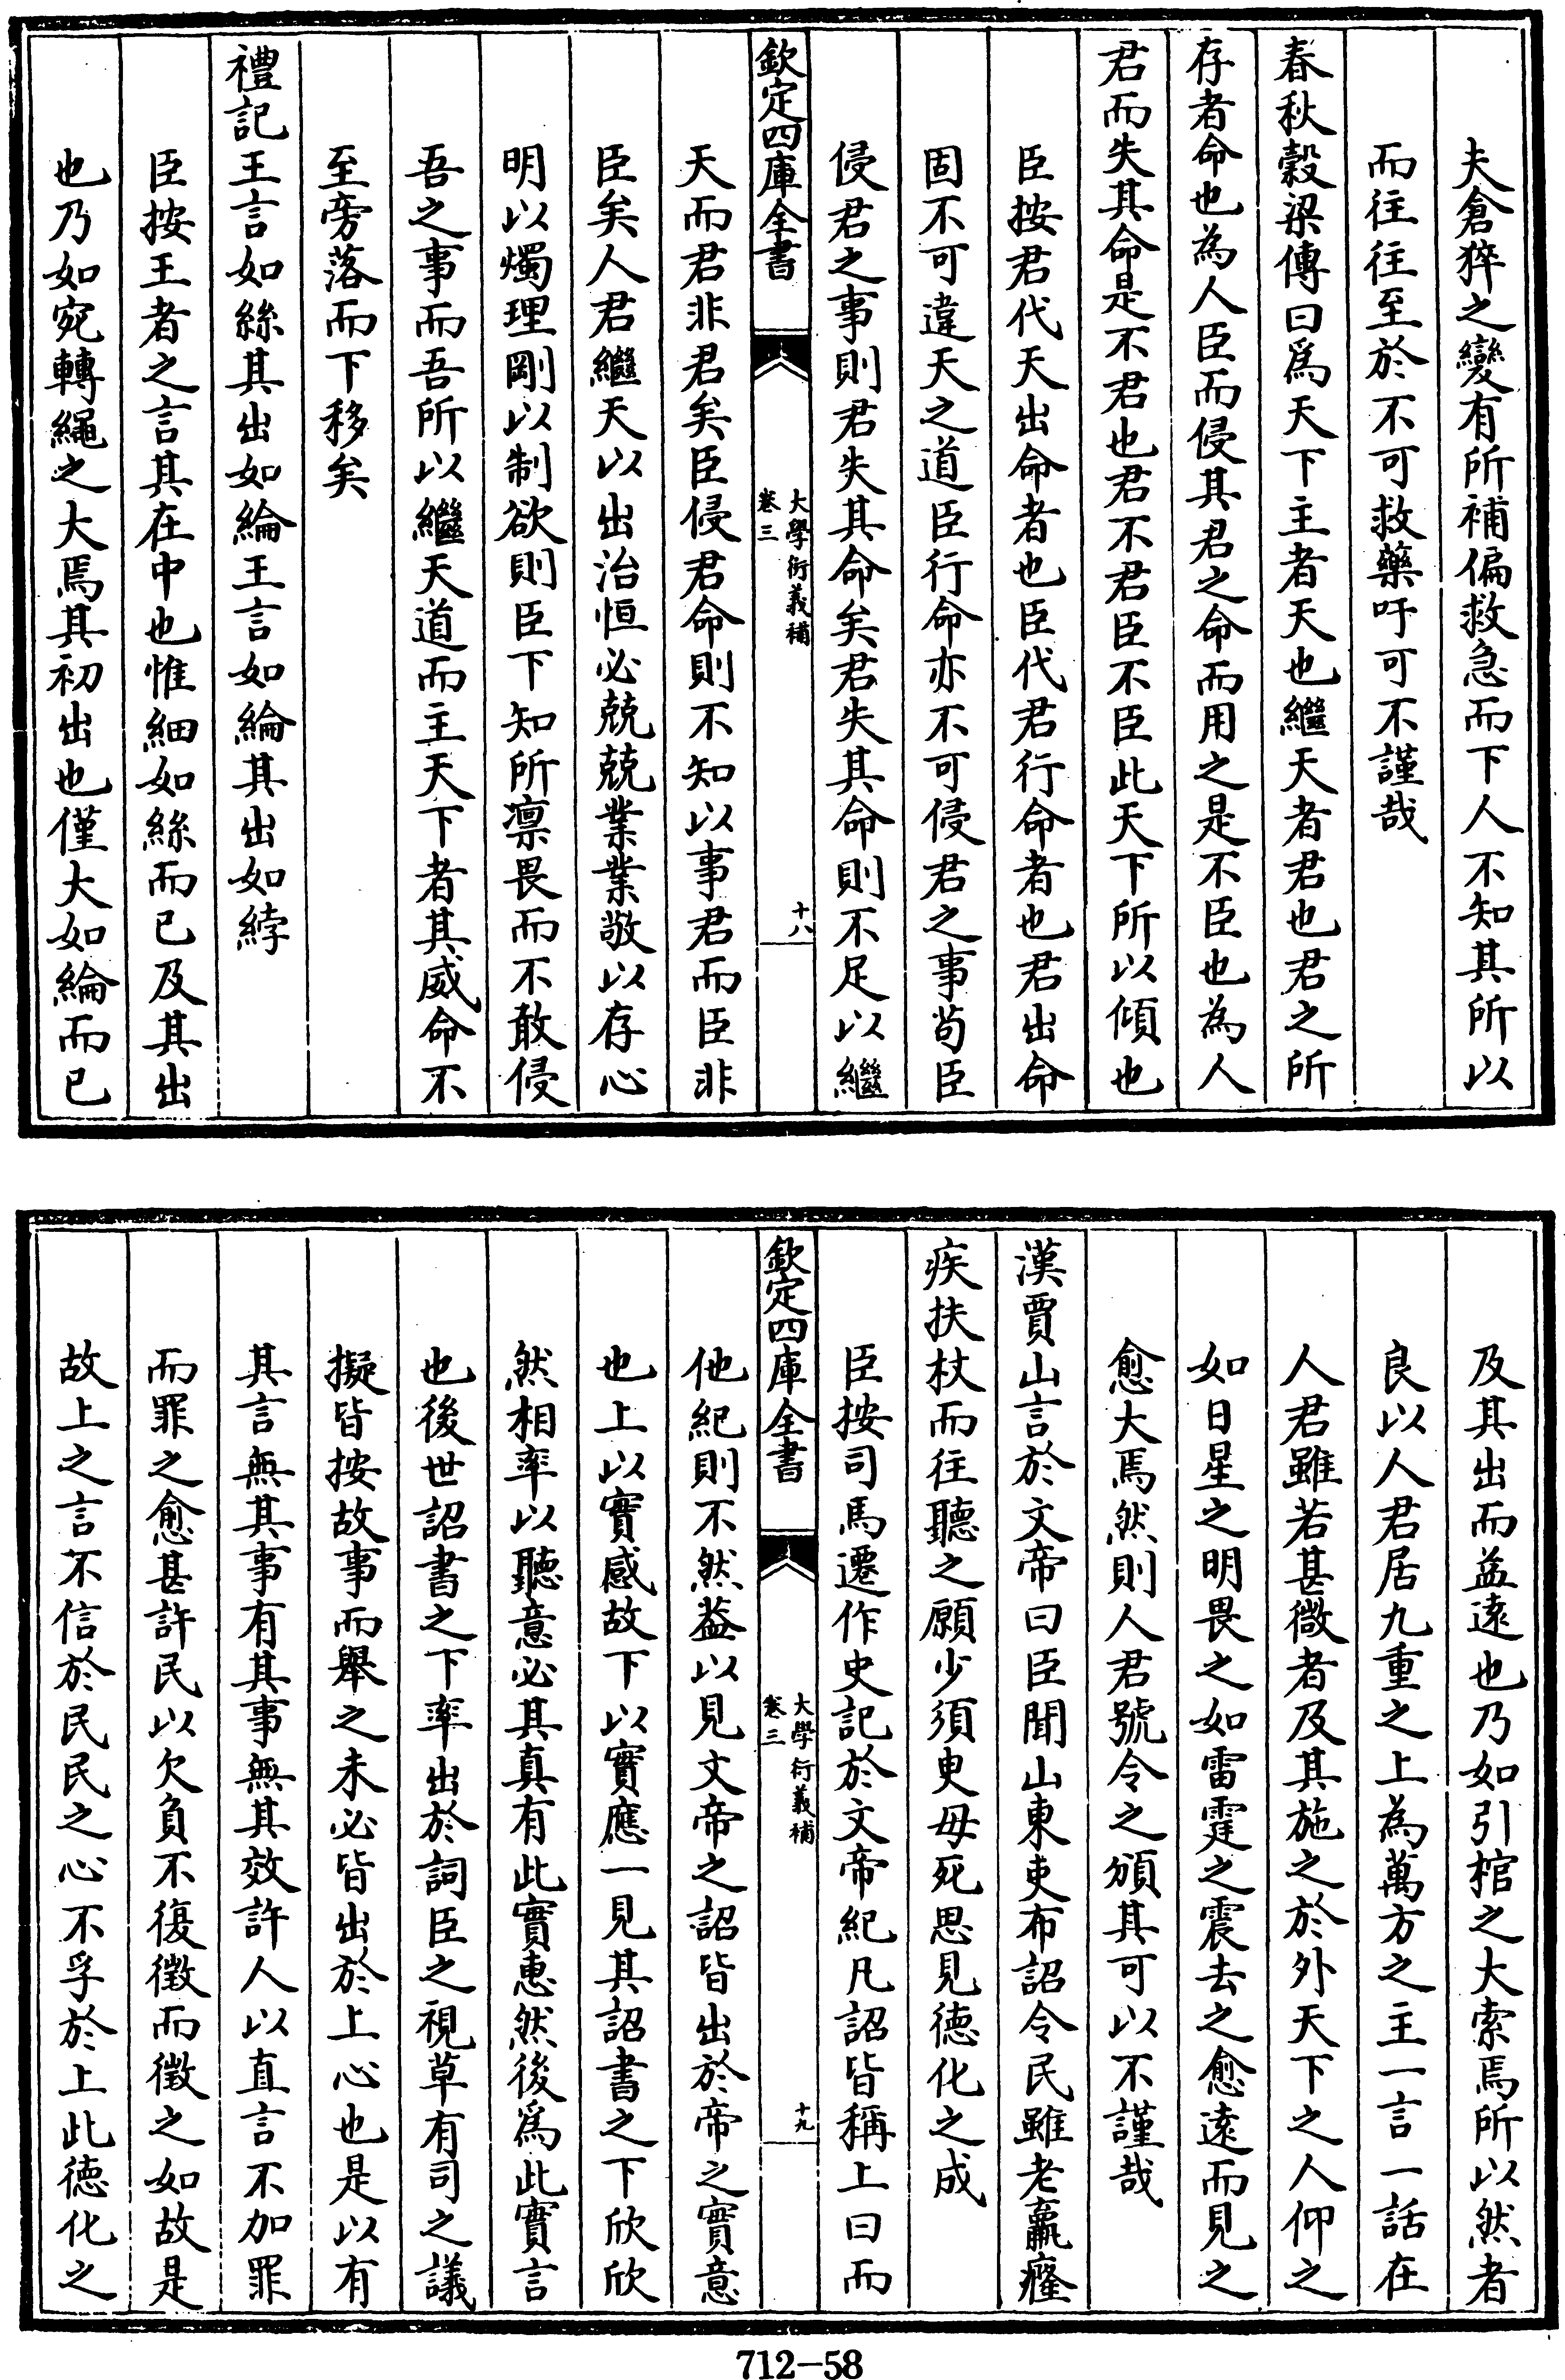 夫倉猝之變有所補偏救急而下人不知其所以
而往往至於不可救藥吁可不謹哉
春秋穀梁傳曰爲天下主者天也繼天者君也君之所
存者命也為人臣而侵其君之命而用之是不臣也為人
君而失其命是不君也君不君臣不臣此天下所以傾也
臣按君代天出命者也臣代君行命者也君出命
固不可違天之道臣行命亦不可侵君之事茍臣
侵君之事則君失其命矣君失其命則不足以繼
欽定四庫全書
大學衍義補
卷三
十八
天而君非君矣臣侵君命則不知以事君而臣非
臣矣人君繼天以出治恒必兢兢業業敬以存心
明以燭理剛以制欲則臣下知所凛畏而不敢侵
吾之事而吾所以繼天道而主天下者其威命不
至旁落而下移矣
禮記王言如絲其出如綸王言如綸其出如綍
臣按王者之言其在中也惟細如絲而已及其出
也乃如宛轉繩之大焉其初出也僅大如綸而已
及其出而益遠也乃如引棺之大索焉所以然者
良以人君居九重之上為萬方之主一言一話在
人君雖若甚微者及其施之於外天下之人仰之
如日星之明畏之如雷霆之震去之愈遠而見之
愈大焉然則人君號令之頒其可以不謹哉
漢賈山言於文帝曰臣聞山東吏布詔令民雖老羸癃
疾扶杖而往聽之願少須臾毋死思見德化之成
臣按司馬遷作史記於文帝紀凡詔皆稱上曰而
欽定四庫全書
大學衍義補
卷三
十九
他紀則不然葢以見文帝之詔皆出於帝之實意
也上以實感故下以實應一見其詔書之下欣欣
然相率以聽意必其真有此實惠然後爲此實言
也後世詔書之下率出於詞臣之視草有司之議
擬皆按故事而舉之未必皆出於上心也是以有
其言無其事有其事無其效許人以直言不加罪
而罪之愈甚許民以欠負不復徵而徵之如故是
故上之言不信於民民之心不孚於上此德化之
712-58